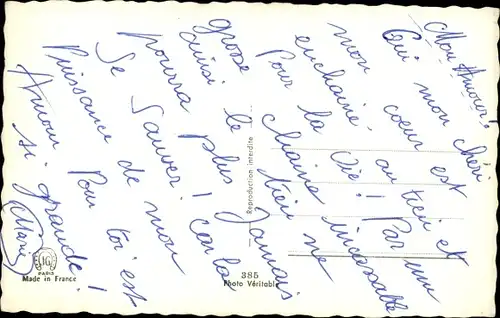 Mon Amour!
Oui mon chéri
mon coeur est
enchainé au tien et
Pour la Vie! Par une
grosse chaine incassable
ainsi le tien ne
pourra plus Jamais
Se Sauver! car la
Puissance de mon
Amour Pour toi est
si grande!
Reproduction interdite
385
Photo Véritable
JG
PARIS
Made in France